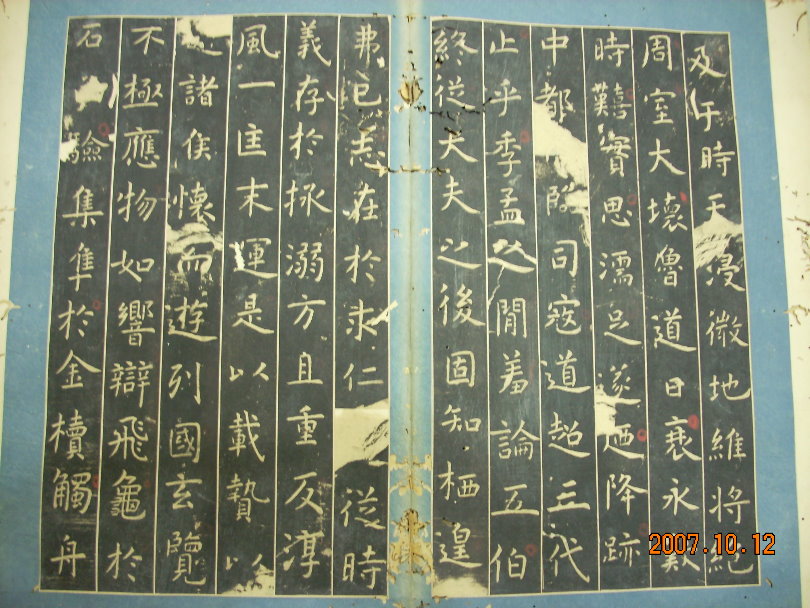 及于時天浸微地維將絕
周室大壞魯道日衰永歎
時囏實思濡足遂迺降跡
中都臨司寇道超三代
止乎季孟之閒羞論五伯
終從大夫之後固知栖遑
弗已志在於求仁從時
義存於拯溺方且重反淳
風一匡末運是以載贄以
諸侯懷而遊列國玄覽
不極應物如響辯飛龜於
石驗集隼於金櫝觸舟
2007.10.12